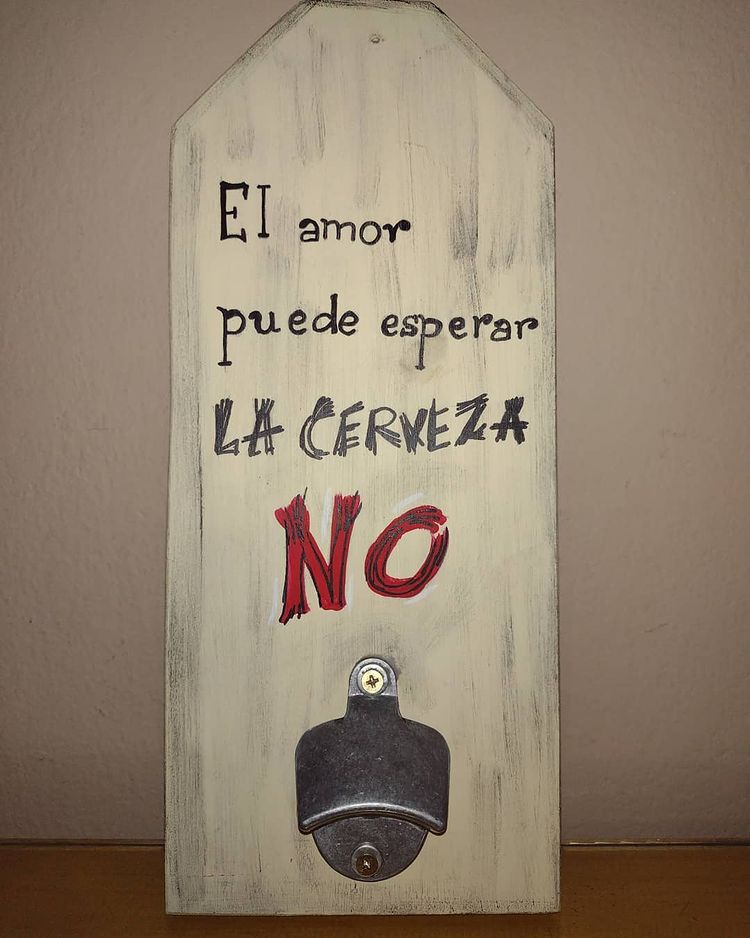 El amor
puede esperar
LA CERVEZA
NO